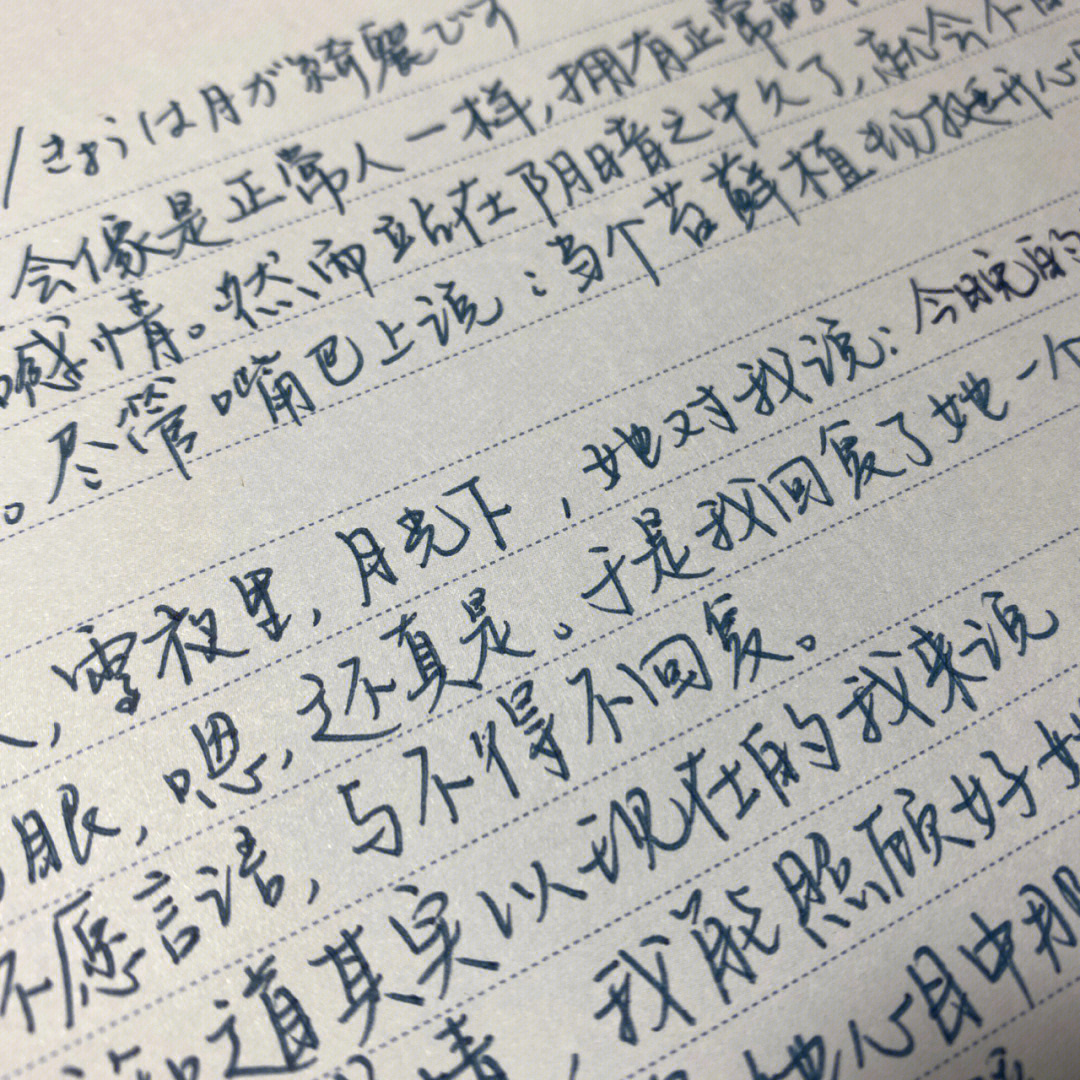 /きょうは月が綺麗です
会像是正常人一样,拥有正常的
感情。然而站在阴暗之中久了,就会不
。尽管嘴巴上说:当个苔藓植物挺开心
,雪夜里,月光下,她对我说:今晚的
眼,嗯,还真是。于是我回复了她一个
不愿言语,与不得不回复。
知道其实以现在的我来说
情,我能照顾好她
她心目中那